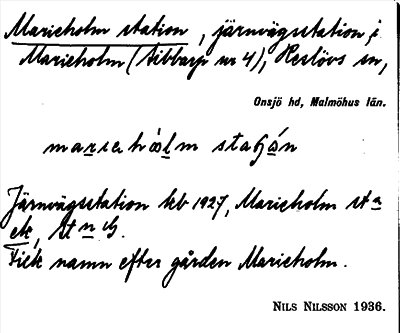 Marieholm station, järnvägsstation, i
Marieholm (Sibbarp nr 4), Reslövs sn,
Onsjö hd, Malmöhus län.
mariehólm staʃón
Järnvägsstation kb 1927, Marieholm st a
ek, St n
Fick namn efter gården Marieholm.
NILS NILSSON 1936.